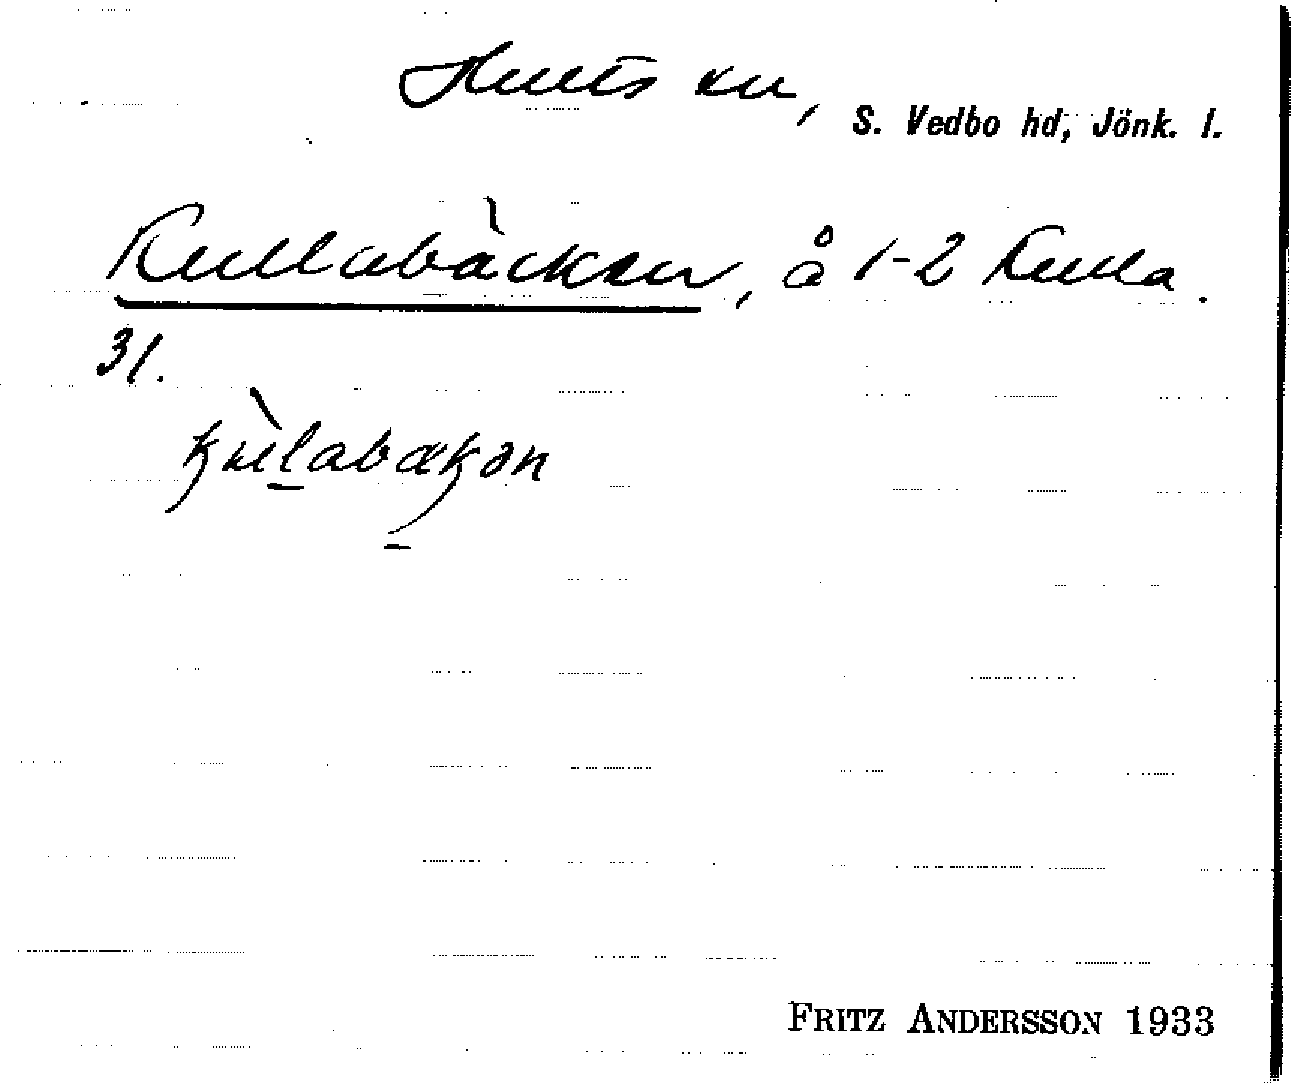 Hults sn,
S. Vedbo hd, Jönk. l.
Kullabäcken, å 1-2 Kulla.
31.
kùlabækən
FRITZ ANDERSSON 1933